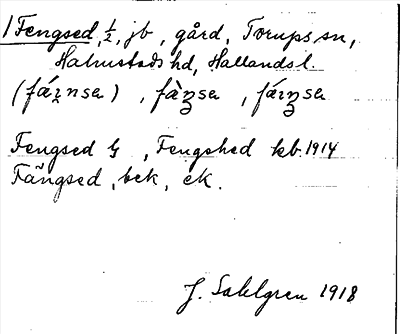 1 Fengsed, 1/2, jb, gård, Torups sn,
Halmstads hd, Hallands l.
Fengsed G, Fengshed kb. 1914
Fängsed, bek, ek.
J. Sahlgren 1918